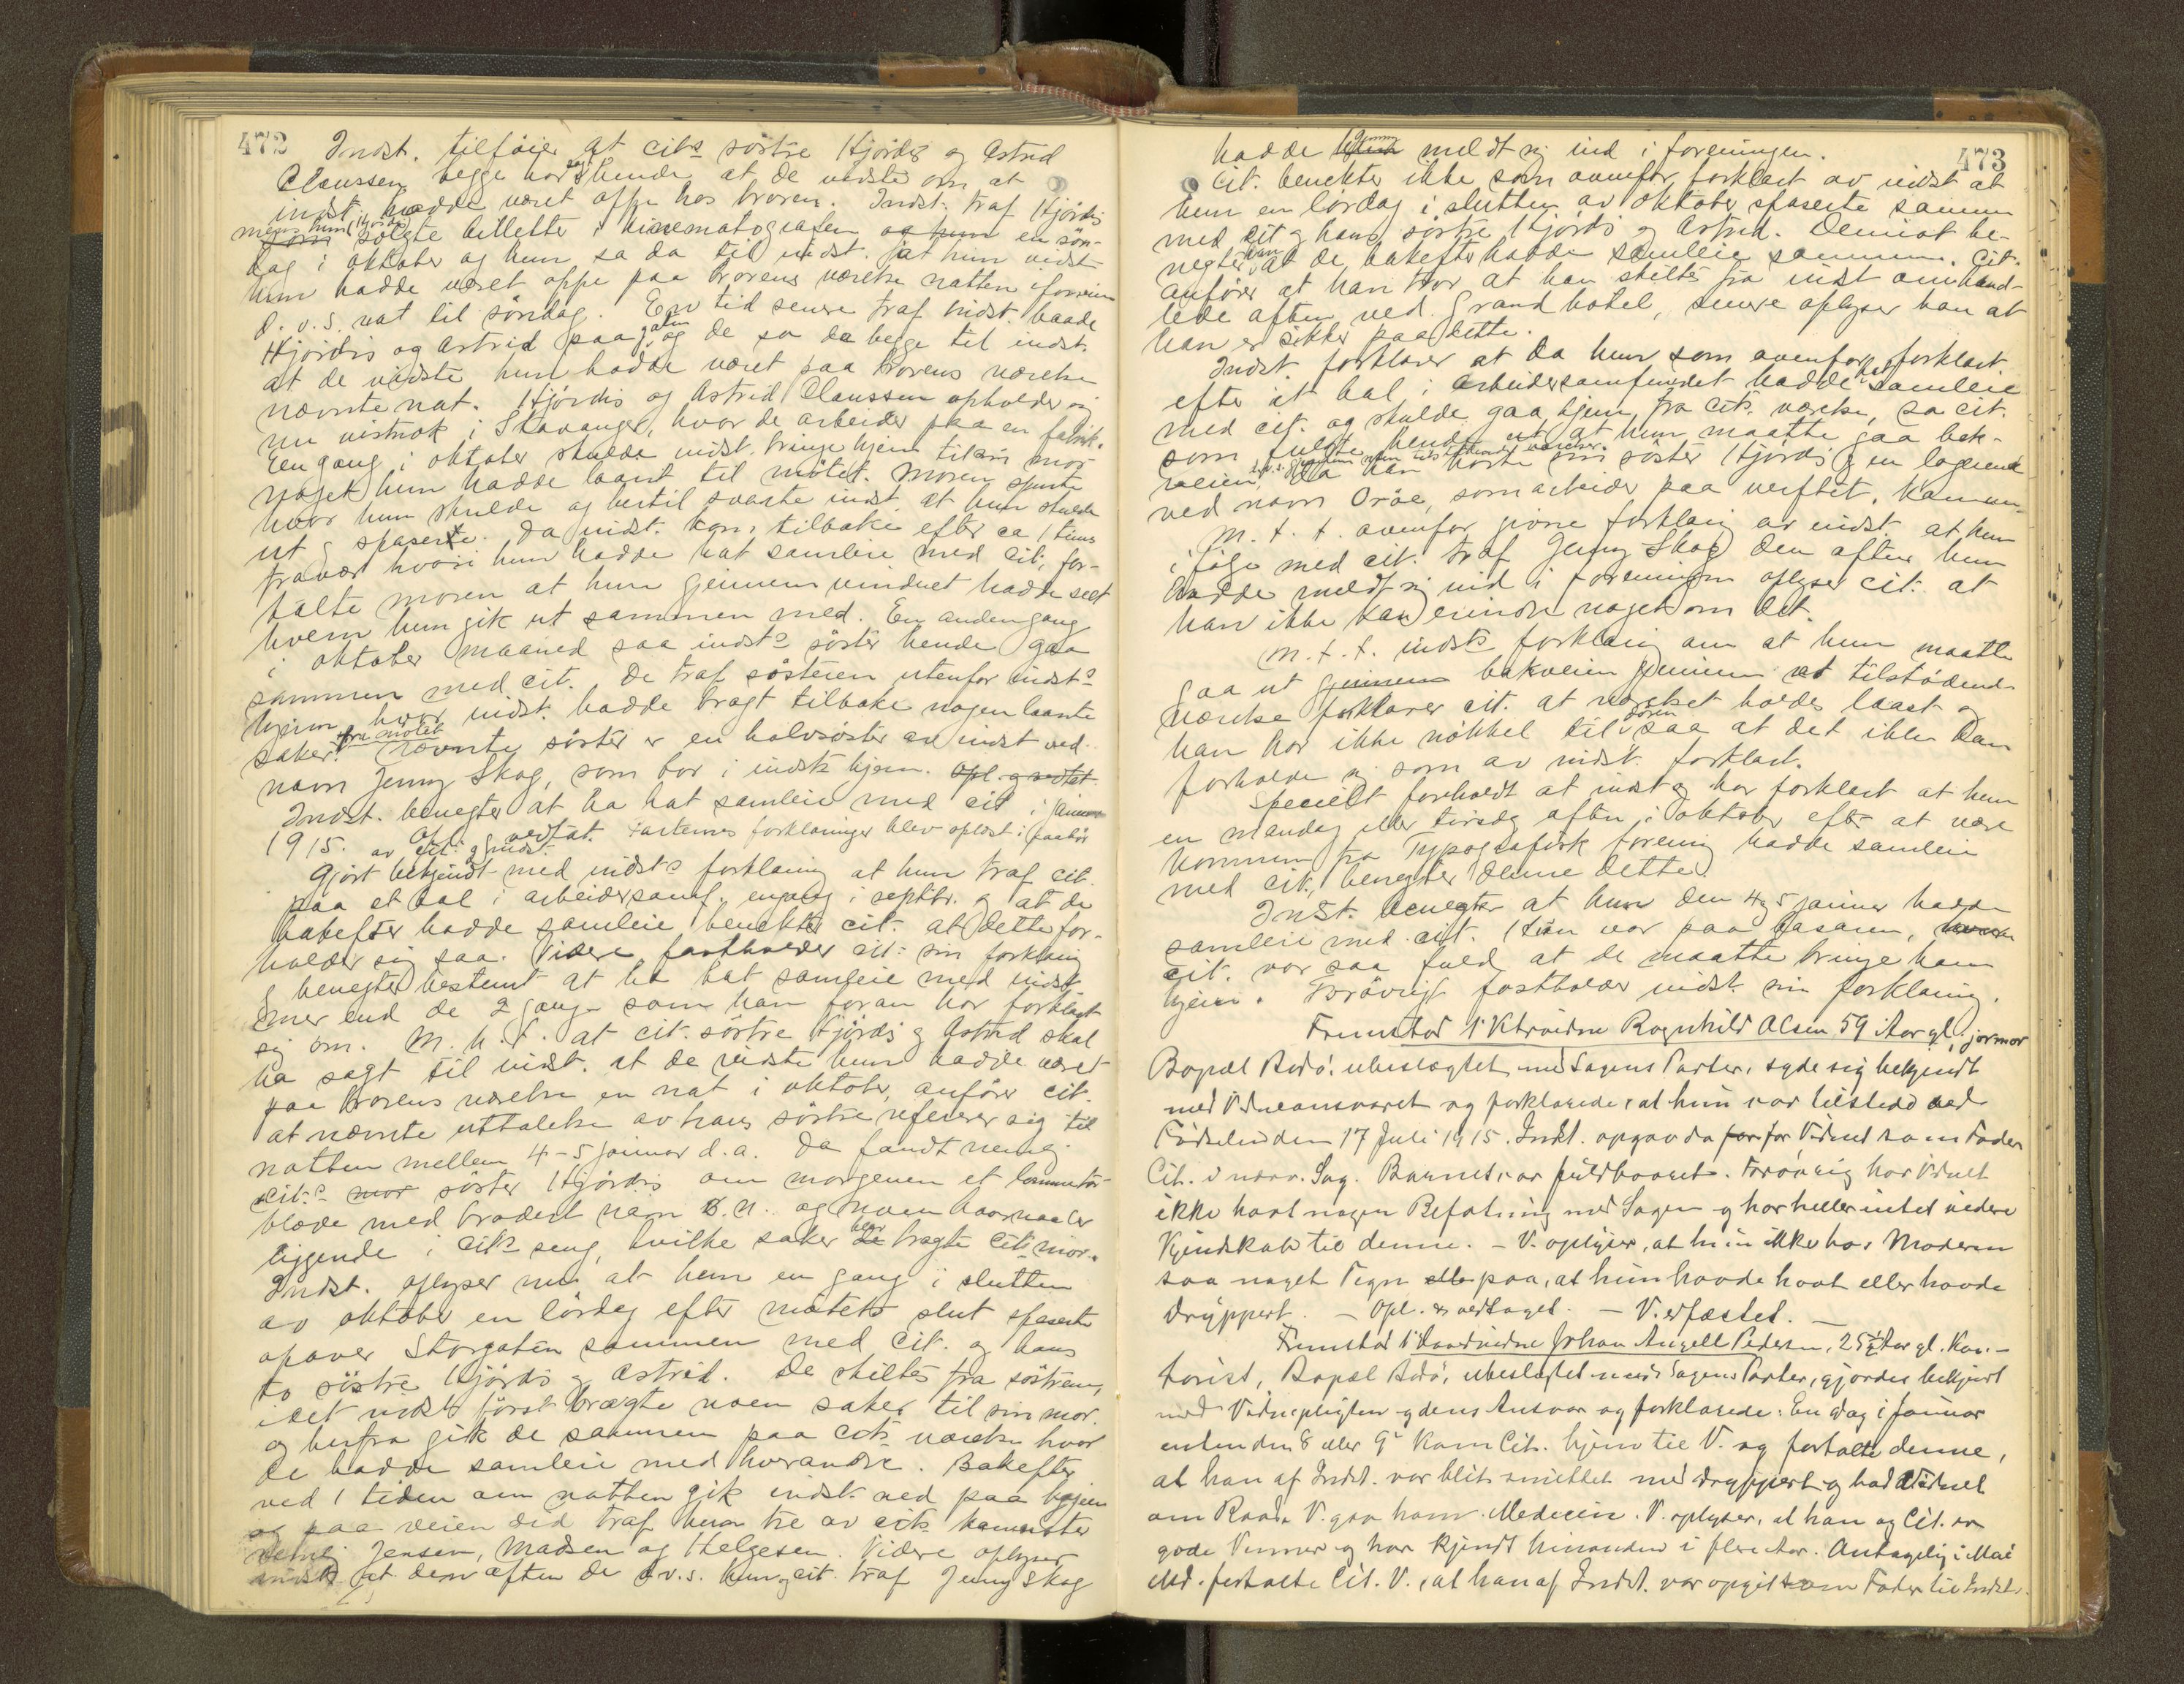 472
Indst. tilføier at cits søstre Hjørdis og Astrid
Claussen begge har sagt hende at de vidste om at
indst. hadde været oppe hos broren. Indst. traf Hjørdis
mens hun (Hjørdis) som solgte billetter i kinematografen og hun en søn-
dag i oktober og hun sa da til indst. at hun vidste
hun hadde været oppe paa brorens værelse natten iforveien
d.v.s. nat til søndag. En tid senere traf indst. baade
Hjørdis og Astrid paa gaten og de sa da begge til indst.
at de vidste hun hadde været paa brorens værelse
nævnte nat. Hjørdis og Astrid Claussen opholder sig
nu vistnok i Stavanger, hvor de arbeider paa en fabrik.
Een gang i oktober skulde indst. bringe hjem til sin mor
noget hun hadde laant til møtet. Moren spurte
hvor hun skulde og hertil svarte indst. at hun skulde
ut og spasere. Da indst. kom tilbake efter ca 1 times
fravær hvori hun hadde hat samleie med cit., for-
talte moren at hun gjennem vinduet hadde seet
hvem hun gik ut sammen med. En anden gang
i oktober maaned saa indsts søster hende gaa
sammen med cit. De traf søsteren utenfor indsts
hjem hvor indst. hadde bragt tilbake nogen laante
saker fra møtet. Nævnte søster er en halvsøster av indst ved
navn Jenny Skog, som bor i indsts hjem. Opl. og vedtat.
Indst. benegter at ha hat samleie med cit i januar
1915. Opl. og vedtat av cit. og indst. Parternes forklaringer blev oplæst i paahør
Gjort bekjendt med indsts forklaring at hun traf cit.
paa et bal i arbeidersamf. engang i septbr. og at de
bakefter hadde samleie benekter cit. at dette for-
holder sig saa. Videre fastholder cit. sin forklaring
og benegter bestemt at ha hat samleie med indst.
mer end de 2 gange som han foran har forklart
sig om. M.h.t. at cit. søstre Hjørdis og Astrid skal
ha sagt til indst. at de vidste hun hadde været
paa brorens værelse en nat i oktober, anfører cit.
at nævnte uttalelse av hans søstre refererer sig til
natten mellem 4-5 januar d.a. Da fandt nemlig
cit.s mor søster Hjørdis om morgenen et lommetør-
klæde med brodert navn D.N. og noen haarnaaler
liggende i cits seng, hvilke saker hun de bragte cits mor.
Indst. oplyser nu at hun en gang i slutten
av oktober en lørdag efter møtets slut spaserte
opover Storgaten sammen med cit. og hans
to søstre Hjørdis og Astrid. De skiltes fra søstrene,
idet indst først bragte noen saker til sin mor.
og herfra gik de sammen paa cits værelse hvor
de hadde samleie med hverandre. Bakefter
ved 1 tiden om natten gik indst. ned paa byen
og paa veien did traf hun tre av cits kamerater
nemlig Jensen, Madsen og Helgesen. Videre oplyser
indst. at den aften de d.v.s. hun og cit. traf Jenny Skog
473
hadde hun meldt sig ind i foreningen.
Cit. benekter ikke som ovenfor forklart av indst at
hun en lørdag i slutten av oktober spaserte sammen
med cit og hans søstre Hjørdis og Astrid. Derimot be-
negter han at de bakefter hadde samleie sammen. Cit.
anfører at han tror at han skiltes fra indst omhand-
lede aften ved Grand hotel, senere oplyser han at
han er sikker paa dette.
Indst. forklarer at da hun som ovenfor forklart
efter et bal i Arbeidersamfundet hadde hat samleie
med cit. og skulde gaa hjem fra cits. værelse, sa cit.
som fulgte hende ut at hun maatte gaa bak-
veien d.v.s. gjennem et tilstødende værelse. Da han hørte sin søster Hjørdis og en logerende
ved navn Orøe, som arbeider paa verftet, kommer.
M.h.t. ovenfor givne forklaring av indst. at hun
i følge med cit. traf Jenny Skog den aften hun
hadde meldt sig ind i foreningen oplyser cit. at
han ikke kan erindre noget om det.
M.h.t. indsts forklaring om at hun maatte
gaa ut gjennem bakveien gjennem et tilstødende
værelse forklarer cit. at værelset holdes laast og
han har ikke nøkkel til døren saa at det ikke kan
forholde sig som av indst. forklart.
Specielt foreholdt at indst og har forklart at hun
en mandag eller tirsdag aften i oktober efter at være
kommen fra Typografisk forening hadde samleie
med cit., benegter denne dette.
Indst. benegter at hun den 4 og 5 januar hadde
samleie med cit. Hun var paa basaren,
cit. var saa fuld at de maatte bringe ham
hjem. Forøvrigt fastholder indst. sin forklaring.
Fremstod 1' Vidne Ragnhild Olsen 59 Aar gl. jormor
Bopæl Bodø, ubeslægtet med Sagens Parter, syde sig bekjendt
med Vidneansvaret og forklarede, at hun var tilstede ved
Fødselen den 17 Juli 1915. Indst. opgav da for Vidnet som Fader
Cit. i nærv. Sag. Barnet var fuldbaaret. Forøvrig har Vidnet
ikke havt nogen Befatning med Sagen og har heller intet videre
Kjendskab til denne. – V. oplyser, at hun ikke hos Moderen
saa noget Tegn eller paa, at hun havde havt eller havde
Dryppert. – Opl. & vedtaget. – V. erfæstet. –
Fremstod 1' Vidne Johan Angell Pedersen, 25½ Aar gl. Kon-
torist, Bopæl Bodø, ubeslægtet med Sagens Parter, gjordes bekjent
med Vidnepligten og dens Ansvar og forklarede: En Dag i Januar
enten den 8 eller 9' kom Cit. hjem til V. og fortalte denne,
at han af Indst. var blit smittet med Dryppert og bad Vidnet
om Raad. V. gav ham Medicin. V. oplyser, at han og Cit. er
gode Venner og har kjendt hinanden i flere Aar. Antagelig i Mai
Md. fortalte Cit. V., at han af Indst. var opgit som Fader til Indsts.